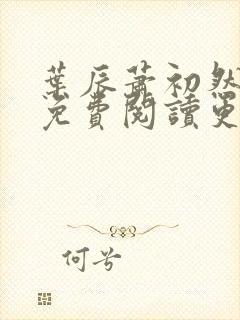 葉辰蕭初然
免費閱讀更
何兮